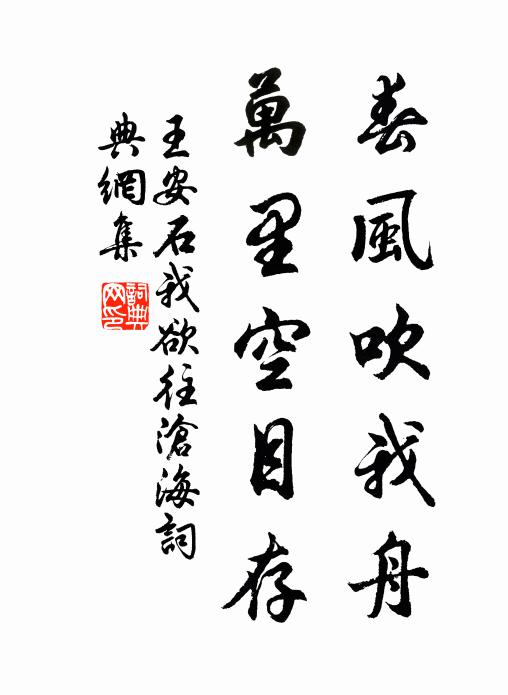 春風吹我舟
萬里空目存
王安石我欲往滄海詞
典網集
詞典
网印